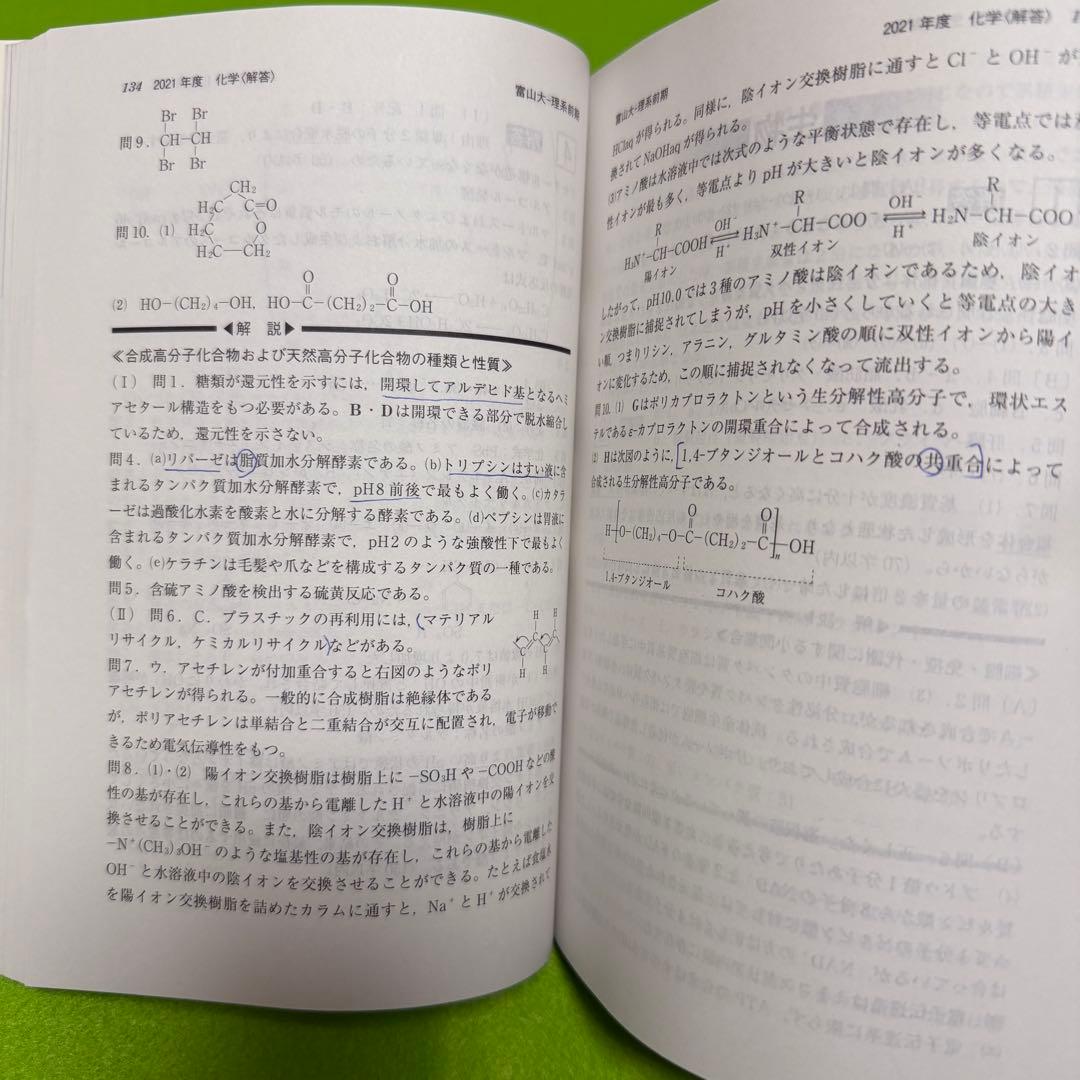 134 2021年度 化学〈解答〉 富山大-理系前期
Br Br
問9. CH−CH
Br Br
CH₂
H₂C C=O
問10. (1) H₂C O
H₂C−CH₂
O O
(2) HO−(CH₂)₄−OH, HO−C−(CH₂)₂−C−OH
◀解 説▶
≪合成高分子化合物および天然高分子化合物の種類と性質≫
(Ⅰ) 問1. 糖類が還元性を示すには, 開環してアルデヒド基となるヘミ
アセタール構造をもつ必要がある。B・Dは開環できる部分で脱水縮合し
ているため, 還元性を示さない。
問4. (a)リパーゼは脂質加水分解酵素である。(b)トリプシンはすい液に含
まれるタンパク質加水分解酵素で, pH8前後で最もよく働く。(c)カタラ
ーゼは過酸化水素を酸素と水に分解する酵素である。(d)ペプシンは胃液に
含まれるタンパク質加水分解酵素で, pH2のような強酸性下で最もよく
働く。(e)ケラチンは毛髪や爪などを構成するタンパク質の一種である。
問5. 含硫アミノ酸を検出する硫黄反応である。
(Ⅱ) 問6. C. プラスチックの再利用には, マテリアル
リサイクル, ケミカルリサイクルなどがある。
問7. ウ. アセチレンが付加重合すると右図のようなポリ
アセチレンが得られる。一般的に合成樹脂は絶縁体である
が, ポリアセチレンは単結合と二重結合が交互に配置され, 電子が移動で
きるため電気伝導性をもつ。
H H
C C
C C
H H
問8. (1)・(2) 陽イオン交換樹脂は樹脂上に −SO₃H や −COOH などの酸
性の基が存在し, これらの基から電離した H⁺ と水溶液中の陽イオンを交
換させることができる。また, 陰イオン交換樹脂は, 樹脂上に
−N⁺(CH₃)₃OH⁻ のような塩基性の基が存在し, これらの基から電離した
OH⁻ と水溶液中の陰イオンを交換させることができる。たとえば食塩水
を陽イオン交換樹脂を詰めたカラムに通すと, Na⁺ と H⁺ が交換されて
2021年度 化学〈解答〉
富山大-理系前期
HClaq が得られる。同様に, 陰イオン交換樹脂に通すと Cl⁻ と OH⁻ が
換されて NaOHaq が得られる。
(3)アミノ酸は水溶液中では次式のような平衡状態で存在し, 等電点では
性イオンが最も多く, 等電点より pH が大きいと陰イオンが多くなる。
R R R
H₃N⁺−CH−COOH ⇄ H₃N⁺−CH−COO⁻ ⇄ H₂N−CH−COO
OH⁻ OH⁻
H⁺ H⁺
陽イオン 双性イオン 陰イオン
したがって, pH10.0では3種のアミノ酸は陰イオンであるため, 陰イオ
ン交換樹脂に捕捉されてしまうが, pHを小さくしていくと等電点の大き
い順, つまりリシン, アラニン, グルタミン酸の順に双性イオンから陽イ
オンに変化するため, この順に捕捉されなくなって流出する。
問10. (1) Gはポリカプロラクトンという生分解性高分子で, 環状エス
テルであるε-カプロラクトンの開環重合によって合成される。
(2) Hは次図のように, 1,4-ブタンジオールとコハク酸の共重合によって
合成される生分解性高分子である。
O O
H−[O−(CH₂)₄−O−C−(CH₂)₂−C]n−OH
1,4-ブタンジオール コハク酸